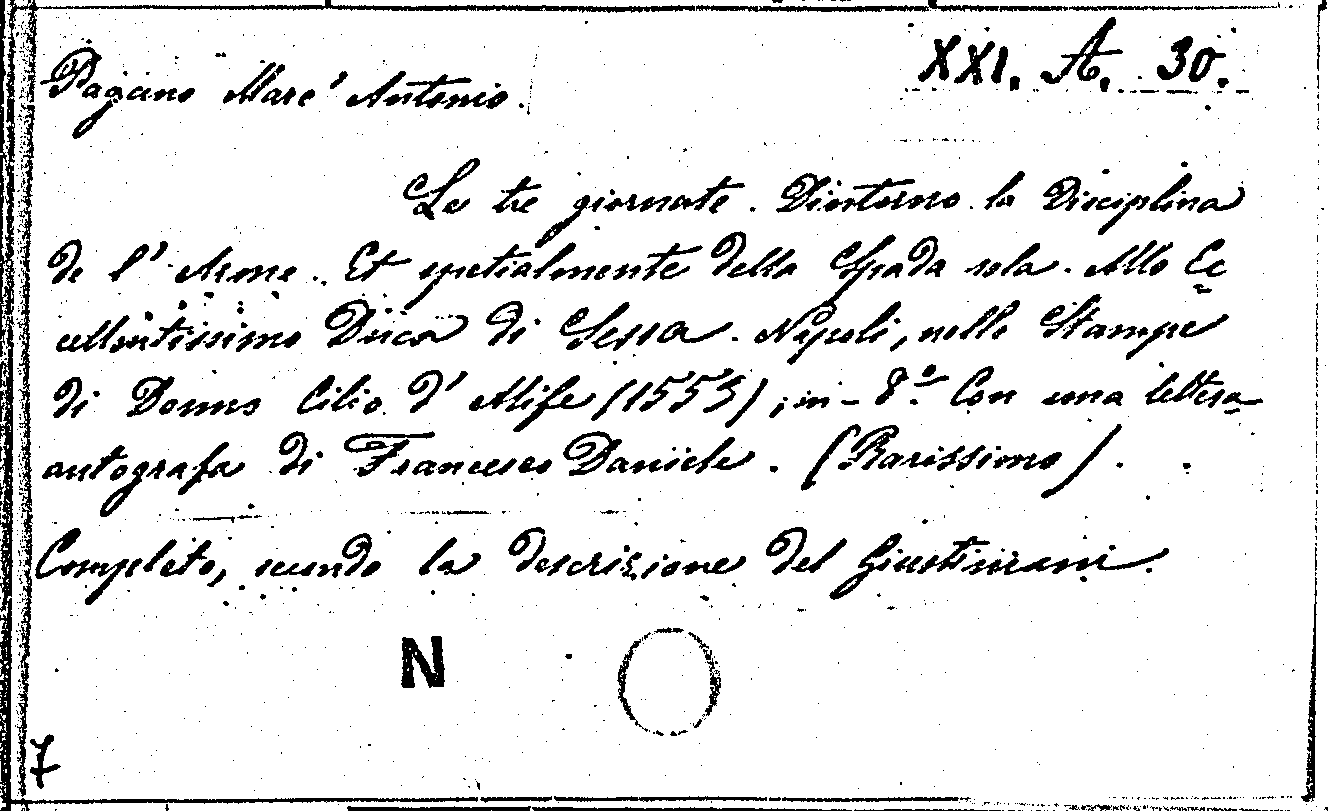 XXI. A. 30.
Pagano Marc' Antonio.
Le tre giornate. Dintorno la Disciplina
de l' Arme. Et spetialmente della Spada sola. Allo Ec
cellentissimo Duca di Sessa. Napoli, nelle Stampe
di Donno Cilio d' Alife (1553); in-8.º Con una lettera
autografa di Francesco Daniele. (Rarissimo).
Completo, secondo la descrizione del Giustiniani.
N
7